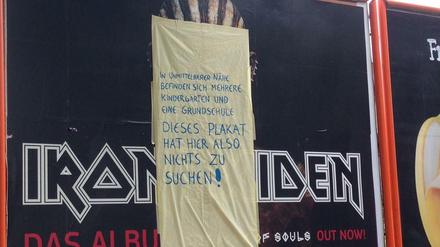 IN UNMITTELBARER NÄHE
BEFINDEN SICH MEHRERE
KINDERGÄRTEN UND
EINE GRUNDSCHULE
DIESES PLAKAT
HAT HIER ALSO
NICHTS ZU
SUCHEN!
IRON IDEN
DAS ALBU OF SOULS OUT NOW!